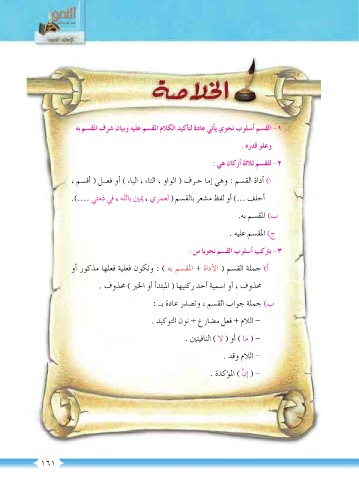 النحو
الخلاصة
١- القسم أسلوب نحوي يأتي عادة لتأكيد الكلام المقسم عليه وبيان شرف المقسم به
وعلو قدره .
٢- للقسم ثلاثة أركان هي :
أ) أداة القسم : وهي إما حرف ( الواو ، التاء ، الباء ) أو فعـل ( أقسم ،
أحلف ...) أو لفظ مشعر بالقسم ( لعمري ، يمين بالله ، في ذمتي ....).
ب) المقسم به.
ج) المقسم عليه .
٣- يتركب أسلوب القسم نحويا من :
أ) جملة القسم ( الأداة + المقسم به ) : وتكون فعلية فعلها مذكور أو
محذوف ، أو اسمية أحد ركنيها ( المبتدأ أو الخبر ) محذوف .
ب) جملة جواب القسم ، وتصدر عادة بـ :
– اللام + فعل مضارع + نون التوكيد .
– ( ما ) أو ( لا ) النافيتين .
– اللام وقد .
– ( إنّ ) المؤكدة .
١٦١